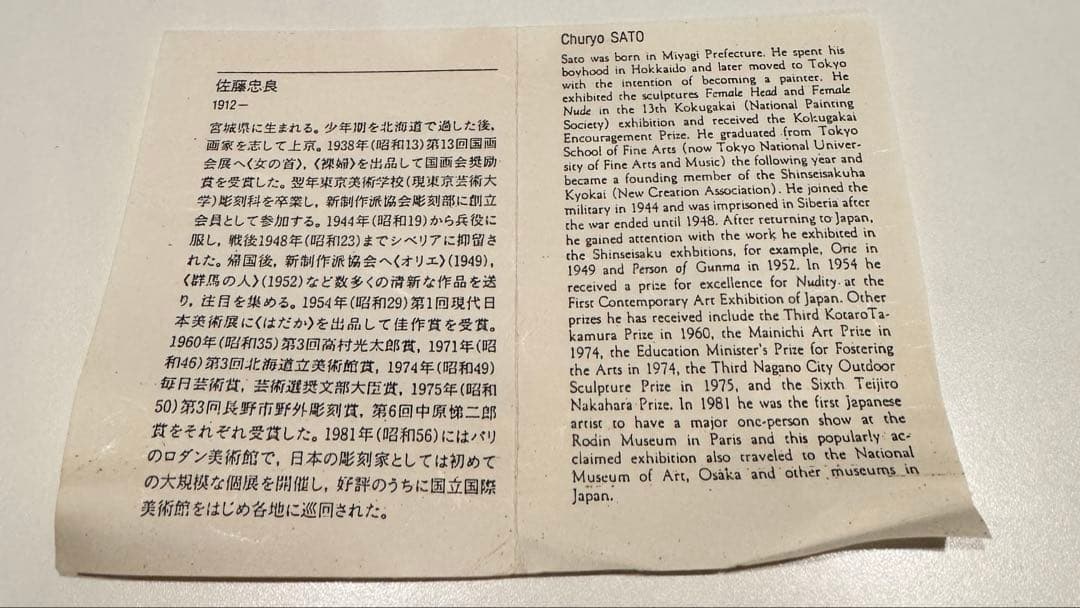 佐藤忠良
1912－
宮城県に生まれる。少年期を北海道で過した後,
画家を志して上京。1938年(昭和13)第13回国画
会展へ〈女の首〉,〈裸婦〉を出品して国画会奨励
賞を受賞した。翌年東京美術学校(現東京芸術大
学)彫刻科を卒業し, 新制作派協会彫刻部に創立
会員として参加する。1944年(昭和19)から兵役に
服し, 戦後1948年(昭和23)までシベリアに抑留さ
れた。帰国後, 新制作派協会へ〈オリエ〉(1949),
〈群馬の人〉(1952)など数多くの清新な作品を送
り, 注目を集める。1954年(昭和29)第1回現代日
本美術展に〈はだか〉を出品して佳作賞を受賞。
1960年(昭和35)第3回高村光太郎賞, 1971年(昭
和46)第3回北海道立美術館賞, 1974年(昭和49)
毎日芸術賞, 芸術選奨文部大臣賞, 1975年(昭和
50)第3回長野市野外彫刻賞, 第6回中原悌二郎
賞をそれぞれ受賞した。1981年(昭和56)にはパリ
のロダン美術館で, 日本の彫刻家としては初めて
の大規模な個展を開催し, 好評のうちに国立国際
美術館をはじめ各地に巡回された。
Churyo SATO
Sato was born in Miyagi Prefecture. He spent his
boyhood in Hokkaido and later moved to Tokyo
with the intention of becoming a painter. He
exhibited the sculptures Female Head and Female
Nude in the 13th Kokugakai (National Painting
Society) exhibition and received the Kokugakai
Encouragement Prize. He graduated from Tokyo
School of Fine Arts (now Tokyo National Univer-
sity of Fine Arts and Music) the following year and
became a founding member of the Shinseisakuha
Kyokai (New Creation Association). He joined the
military in 1944 and was imprisoned in Siberia after
the war ended until 1948. After returning to Japan,
he gained attention with the work he exhibited in
the Shinseisaku exhbitions, for example, One in
1949 and Person of Gunma in 1952. In 1954 he
received a prize for excellence for Nudity at the
First Contemporary Art Exhibition of Japan. Other
prizes he has received include the Third KotaroTa-
kamura Prize in 1960, the Mainichi Art Prize in
1974, the Education Minister's Prize for Fostering
the Arts in 1974, the Third Nagano City Outdoor
Sculpture Prize in 1975, and the Sixth Teijiro
Nakahara Prize. In 1981 he was the first Japanese
artist to have a major one-person show at the
Rodin Museum in Paris and this popularly ac-
claimed exhibition also traveled to the National
Museum of Art, Osaka and other museums in
Japan.